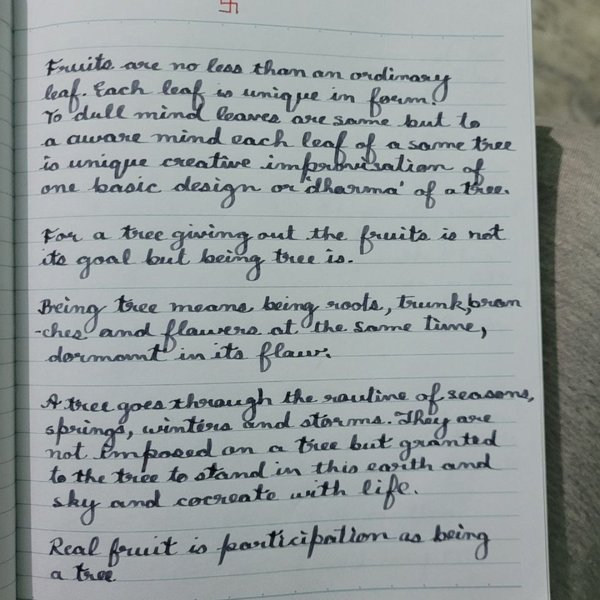 卐
Fruits are no less than an ordinary
leaf. Each leaf is unique in form.
To dull mind leaves are same but to
a aware mind each leaf of a same tree
is unique creative improvisation of
one basic design or 'dharma' of a tree.
For a tree giving out the fruits is not
its goal but being tree is.
Being tree means being roots, trunk, bran
-ches and flowers at the same time,
dormant in its flow.
A tree goes through the routine of seasons,
springs, winters and storms. They are
not imposed on a tree but granted
to the tree to stand in this earth and
sky and cocreate with life.
Real fruit is participation as being
a tree